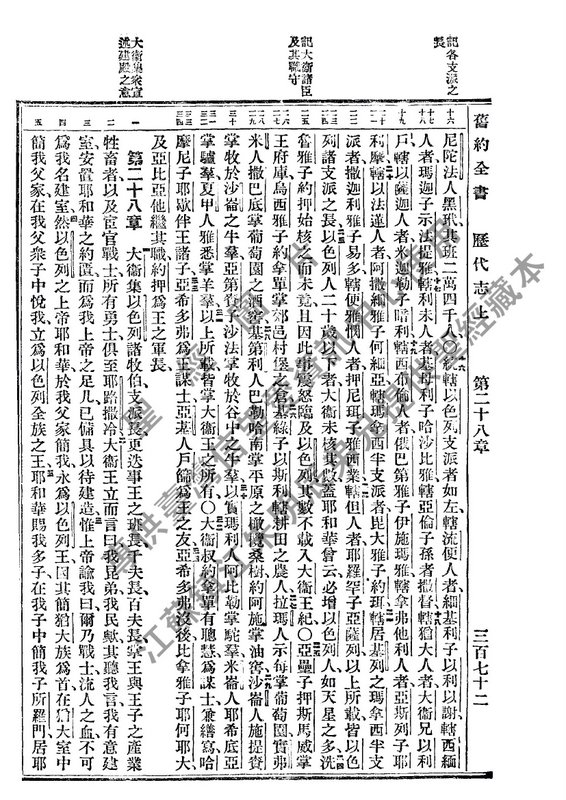 舊約全書 歷代志上 第二十八章 三百七十二
記各支派之長
記大衛諸臣及其職守
大衛集衆宣述建殿之意
尼陀法人黑玳其班二萬四千人〇統轄以色列支派者如左轄流便人者細基利子以利以謝轄西緬
人者瑪迦子示法提雅轄利未人者基母利子哈沙比雅轄亞倫子孫者撒督轄猶大人者大衛兄以利
戶轄以薩迦人者米迦勒子暗利轄西布倫人者俄巴第雅子伊施瑪雅轄拿弗他利人者亞斯列子耶
利摩轄以法蓮人者阿撒細雅子何細亞轄瑪拿西半支派者毘大雅子約珥轄居基列之瑪拿西半支
派者撒迦利雅子易多轄便雅憫人者押尼珥子雅西業轄但人者耶羅罕子亞薩列以上所載皆以色
列諸支派之長以色列人二十歲以下者大衛未核其數蓋耶和華曾云必增以色列人如天星之多洗
魯雅子約押始核之而未竟且因此事震怒臨及以色列其數不載入大衛王紀〇亞疊子押斯馬威掌
王府庫烏西雅子約拿單掌郊邑村堡之倉基綠子以斯利轄耕田之農人拉瑪人示每掌葡萄園實弗
米人撒巴底掌葡萄園之酒窖基第利人巴勒哈南掌平原之橄欖桑樹約阿施掌油窖沙崙人施提賚
掌牧於沙崙之牛羣亞第賚子沙法掌牧於谷中之牛羣以實瑪利人阿比勒掌駝羣米崙人耶希底亞
掌驢羣夏甲人雅悉掌羊羣以上所載皆掌大衛王之所有〇大衛叔約拿單有聰慧為謀士兼繕寫哈
摩尼子耶歇伴王諸子亞希多弗為王謀士亞基人戶篩為王之友亞希多弗沒後比拿雅子耶何耶大
及亞比亞他繼其職約押為王之軍長
第二十八章 大衛集以色列諸牧伯支派長更迭事王之班長千夫長百夫長掌王與王子之產業
牲畜者以及宦官戰士所有勇士俱至耶路撒冷大衛王立而言曰我昆弟我民歟其聽我言我有意建
室安置耶和華之約匱而為我上帝之足几已備具以待建造惟上帝諭我曰爾乃戰士流人之血不可
為我名建室然以色列之上帝耶和華於我父家簡我永為以色列王因其簡猶大族為首在猶大室中
簡我父家在我父衆子中悅我立為以色列全族之王耶和華賜我多子在我子中簡我子所羅門居耶